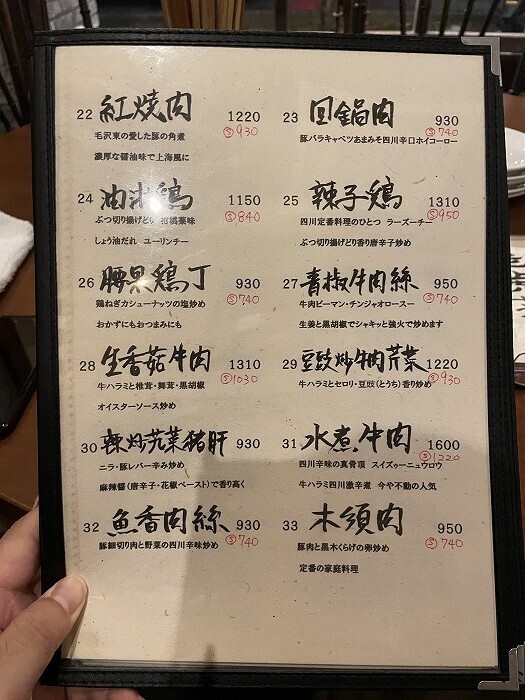 22 紅焼肉 1220
Ⓢ930
毛沢東の愛した豚の角煮
濃厚な醤油味で上海風に
23 回鍋肉 930
Ⓢ740
豚バラキャベツあまみそ四川辛口ホイコーロー
24 油淋鶏 1150
Ⓢ840
ぶつ切り揚げどり 柑橘葉味
しょう油だれ ユーリンチー
25 辣子鶏 1310
Ⓢ950
四川定番料理のひとつ ラーズーチー
ぶつ切り揚げどり香り唐辛子炒め
26 腰果鶏丁 930
Ⓢ740
鶏ねぎカシューナッツの塩炒め
おかずにもおつまみにも
27 青椒牛肉絲 950
Ⓢ740
牛肉ピーマン・チンジャオロースー
生姜と黒胡椒でシャキッと強火で炒めます
28 生香菇牛肉 1310
Ⓢ1030
牛ハラミと椎茸・舞茸・黒胡椒
オイスターソース炒め
29 豆豉炒牛肉芹菜 1220
Ⓢ930
牛ハラミとセロリ・豆豉(とうち)香り炒め
30 辣炒韮菜猪肝 930
ニラ・豚レバー辛み炒め
麻辣醤(唐辛子・花椒ペースト)で香り高く
31 水煮牛肉 1600
Ⓢ1220
四川辛味の真骨頂 スイズゥーニュウロウ
牛ハラミ四川激辛煮 今や不動の人気
32 魚香肉絲 930
Ⓢ740
豚細切り肉と野菜の四川辛味炒め
33 木須肉 950
Ⓢ740
豚肉と黒木くらげの卵炒め
定番の家庭料理